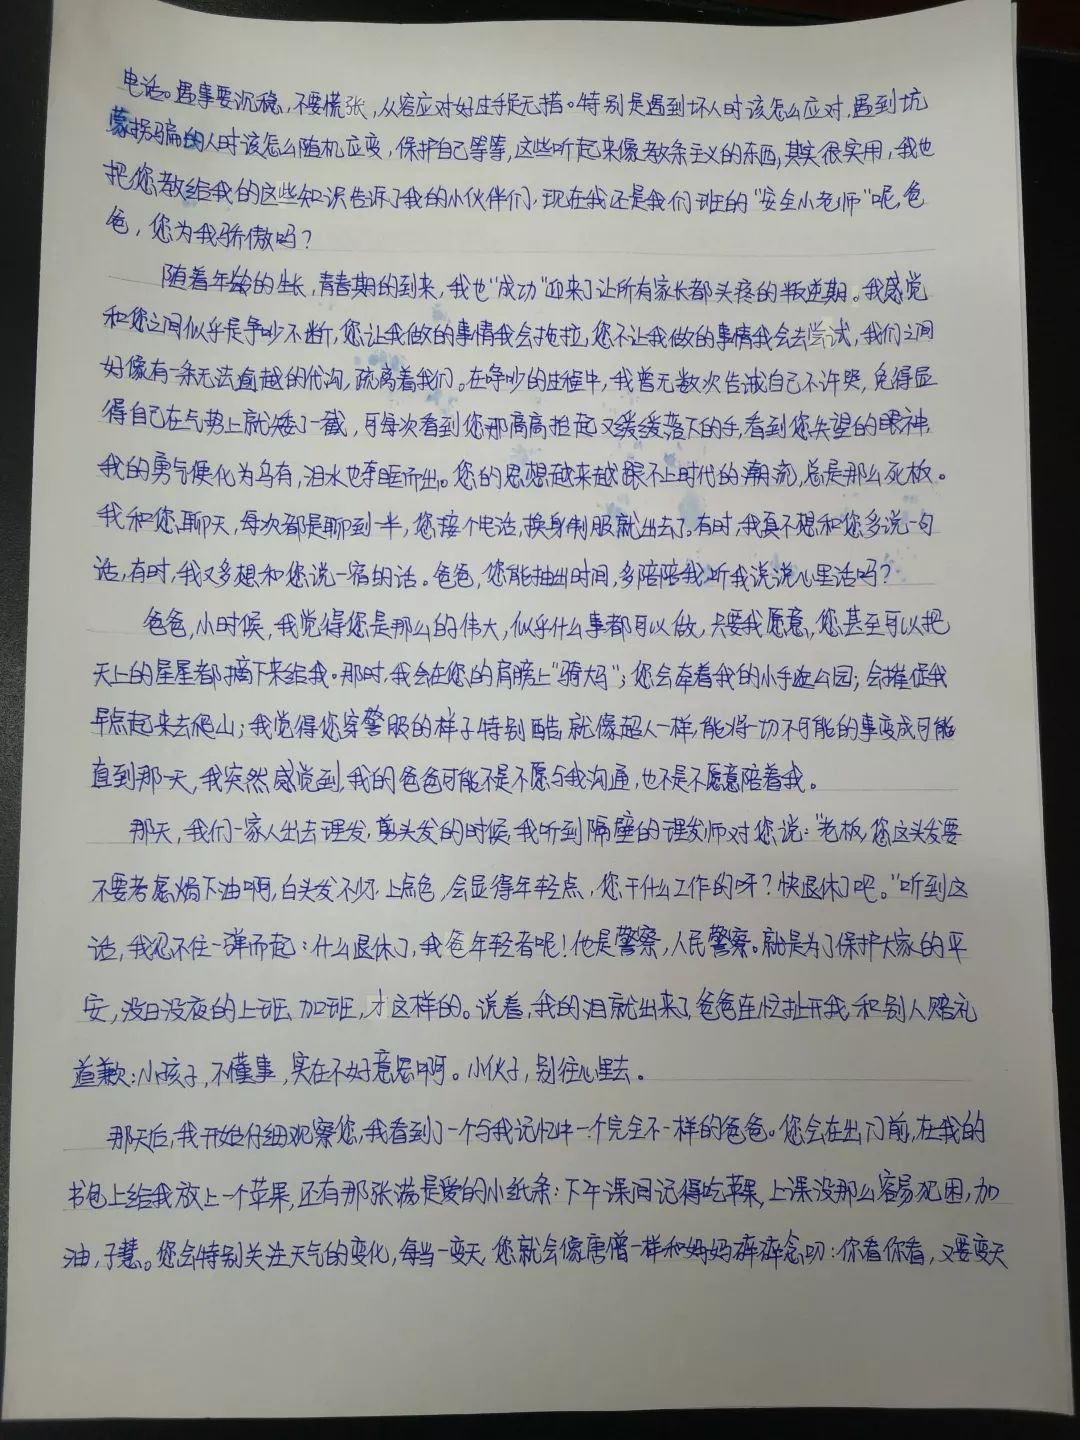 电话。遇事要沉稳,不要慌张,从容应对好过手足无措。特别是遇到坏人时该怎么应对,遇到坑
蒙拐骗的人时该怎么随机应变,保护自己等等,这些听起来像教条主义的东西,其实很实用,我也
把您教给我的这些知识告诉了我的小伙伴们,现在我还是我们班的“安全小老师”呢,爸
爸,您为我骄傲吗?
随着年龄的生长,青春期的到来,我也“成功”迎来了让所有家长都头疼的叛逆期。我感觉
和您之间似乎是争吵不断,您让我做的事情我会拖拉,您不让我做的事情我会去尝试,我们之间
好像有一条无法逾越的代沟,疏离着我们。在争吵的过程中,我曾无数次告诫自己不许哭,免得显
得自己在气势上就矮了一截,可每次看到您那高高抬起又缓缓落下的手,看到您失望的眼神,
我的勇气便化为乌有,泪水也夺眶而出。您的思想越来越跟不上时代的潮流,总是那么死板。
我和您聊天,每次都是聊到一半,您接个电话,换身制服就出去了。有时,我真不想和您多说一句
话,有时,我又多想和您说一宿的话。爸爸,您能抽出时间,多陪陪我,听我说说心里话吗?
爸爸,小时候,我觉得您是那么的伟大,似乎什么事都可以做,只要我愿意,您甚至可以把
天上的星星都摘下来给我。那时,我会在您的肩膀上“骑大马”;您会牵着我的小手逛公园;会催促我
早点起来去爬山;我觉得您穿警服的样子特别酷,就像超人一样,能将一切不可能的事变成可能
直到那一天,我突然感觉到,我的爸爸可能不是不愿与我沟通,也不是不愿意陪着我。
那天,我们一家人出去理发,剪头发的时候,我听到隔壁的理发师对您说:“老板,您这头发要
不要考虑焗下油啊,白头发不少,上点色,会显得年轻点,您干什么工作的呀?快退休了吧。”听到这
话,我忍不住一弹而起:什么退休了,我爸年轻着呢!他是警察,人民警察。就是为了保护大家的平
安,没日没夜的上班、加班,才这样的。说着,我的泪就出来了,爸爸连忙扯开我,和别人赔礼
道歉:小孩子,不懂事,实在不好意思啊。小伙子,别往心里去。
那天后,我开始仔细观察您,我看到了一个与我记忆中一个完全不一样的爸爸。您会在出门前,在我的
书包上给我放上一个苹果,还有那张满是爱的小纸条:下午课间记得吃苹果,上课没那么容易犯困,加
油,子慧。您会特别关注天气的变化,每当一变天,您就会像唐僧一样和妈妈碎碎念叨:你看你看,又要变天